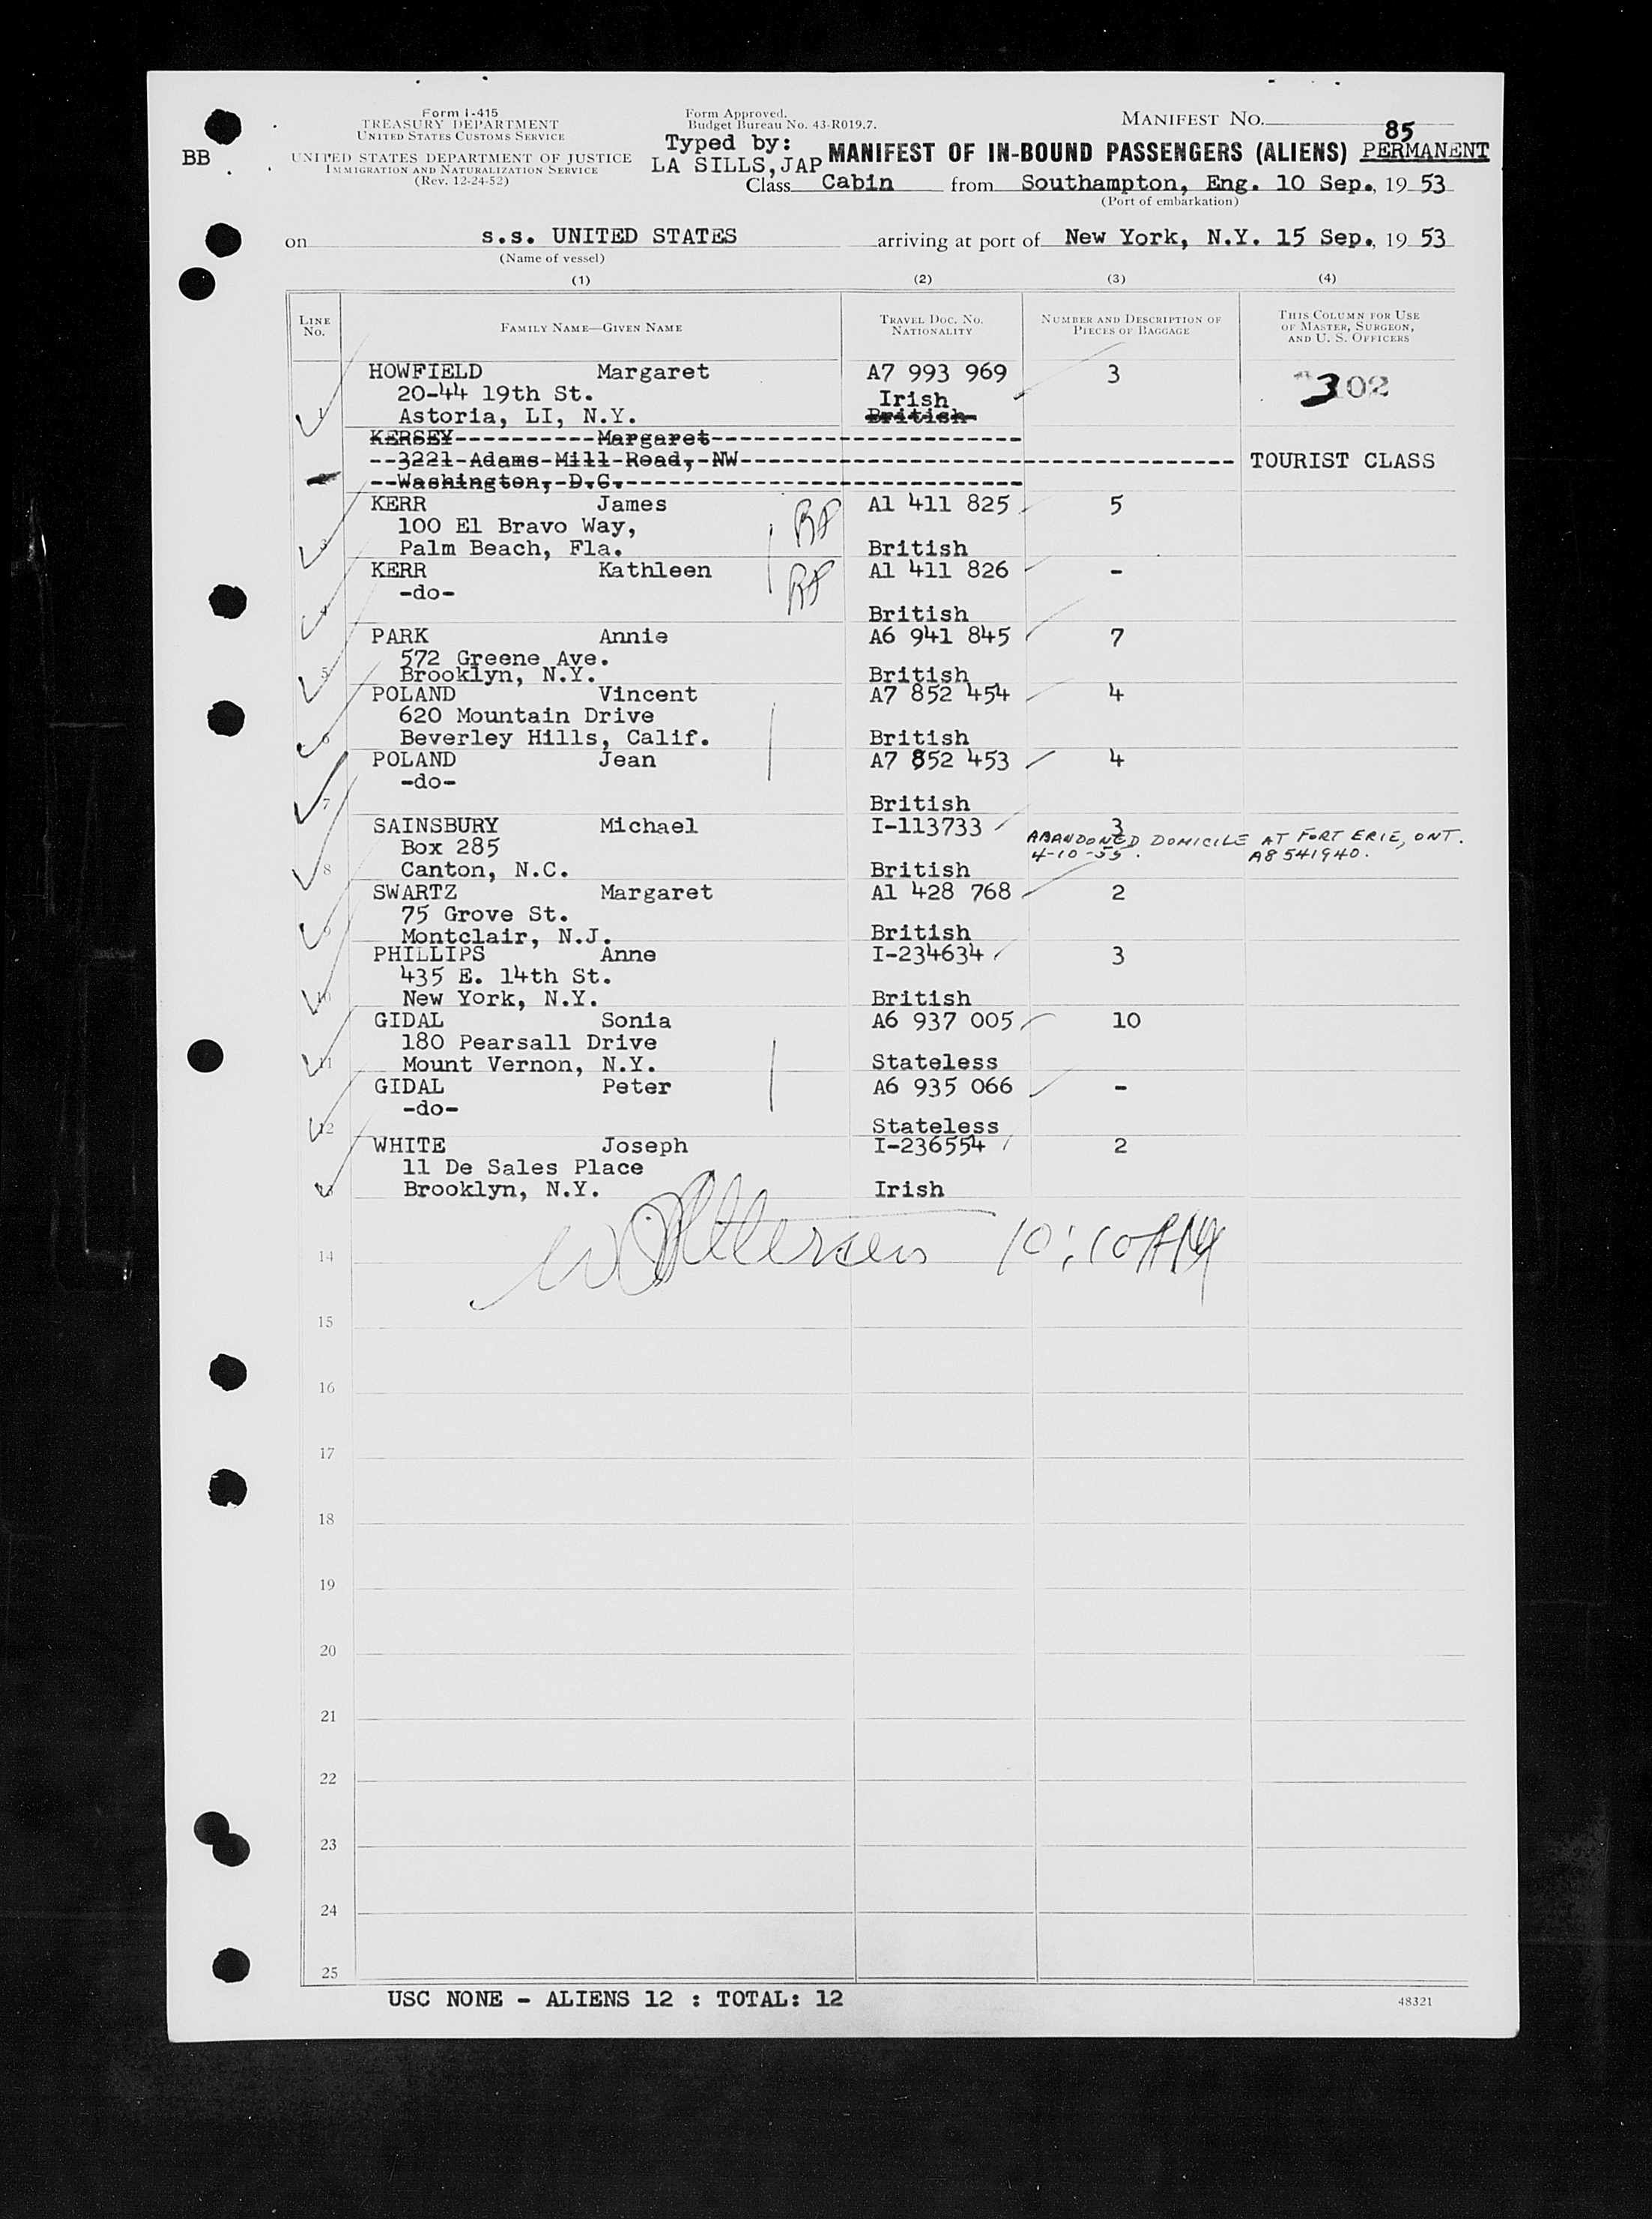 Form I-415
TREASURY DEPARTMENT
UNITED STATES CUSTOMS SERVICE
UNITED STATES DEPARTMENT OF JUSTICE
IMMIGRATION AND NATURALIZATION SERVICE
(Rev. 12-24-52)
BB
Form Approved.
Budget Bureau No. 43-R019.7.
Typed by:
LA SILLS, JAP
MANIFEST NO. 85
MANIFEST OF IN-BOUND PASSENGERS (ALIENS) PERMANENT
Class Cabin from Southampton, Eng. 10 Sep., 19 53
(Port of embarkation)
on s.s. UNITED STATES arriving at port of New York, N.Y. 15 Sep., 19 53
(Name of vessel)
(1) (2) (3) (4)
LINE NO. FAMILY NAME—GIVEN NAME TRAVEL DOC. NO. NATIONALITY NUMBER AND DESCRIPTION OF PIECES OF BAGGAGE THIS COLUMN FOR USE OF MASTER, SURGEON, AND U. S. OFFICERS
HOWFIELD Margaret A7 993 969 3 302
20-44 19th St. Irish
1 Astoria, LI, N.Y. British
KERSEY Margaret
3221 Adams Mill Road, NW TOURIST CLASS
Washington, D.C.
KERR James A1 411 825 5
100 El Bravo Way,
3 Palm Beach, Fla. British
KERR Kathleen A1 411 826 -
-do-
4 British
PARK Annie A6 941 845 7
572 Greene Ave.
5 Brooklyn, N.Y. British
POLAND Vincent A7 852 454 4
620 Mountain Drive
6 Beverley Hills, Calif. British
POLAND Jean A7 852 453 4
-do-
7 British
SAINSBURY Michael I-113733 3
Box 285 ABANDONED DOMICILE AT FORT ERIE, ONT.
4-10-55. A8 541940.
8 Canton, N.C. British
SWARTZ Margaret A1 428 768 2
75 Grove St.
9 Montclair, N.J. British
PHILLIPS Anne I-234634 3
435 E. 14th St.
10 New York, N.Y. British
GIDAL Sonia A6 937 005 10
180 Pearsall Drive
11 Mount Vernon, N.Y. Stateless
GIDAL Peter A6 935 066 -
-do-
12 Stateless
WHITE Joseph I-236554 2
11 De Sales Place
13 Brooklyn, N.Y. Irish
10:10 AM
14
15
16
17
18
19
20
21
22
23
24
25
USC NONE - ALIENS 12 : TOTAL: 12
48321